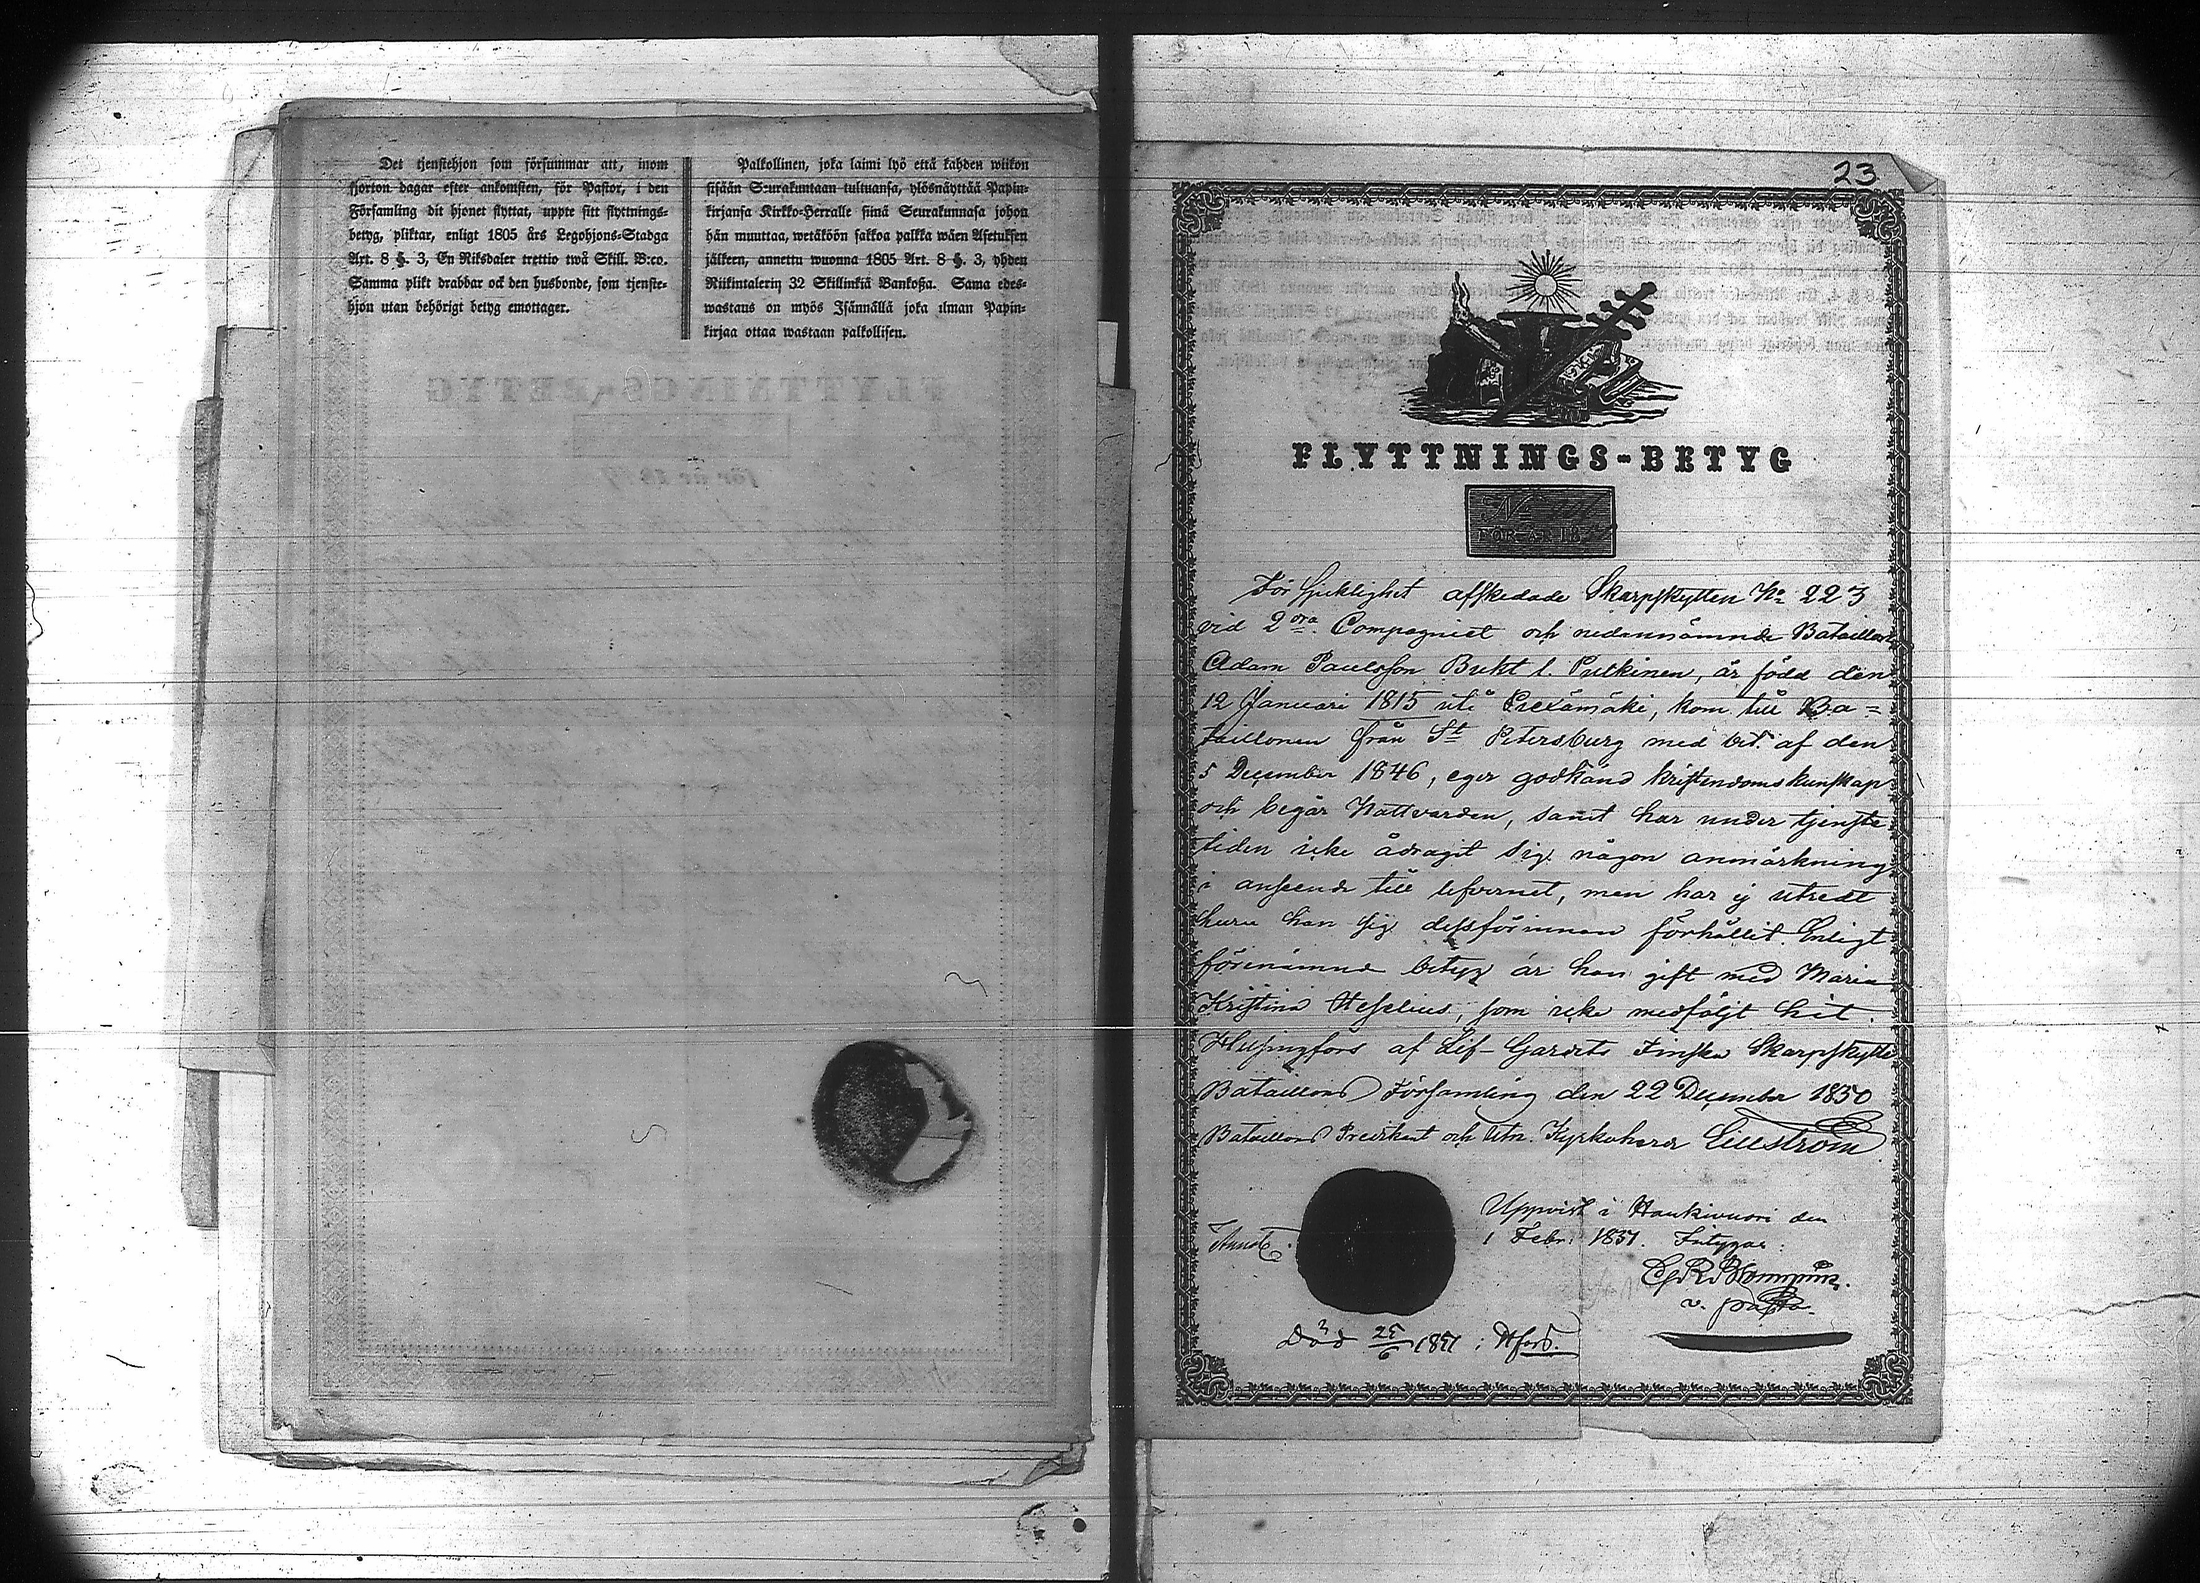 Det tjenstehjon som försummar att, inom
fjorton dagar efter ankomsten, för Pastor, i den
Församling dit hjonet flyttat, uppte sitt flyttnings-
betyg, pliktar, enligt 1805 års Legohjons-Stadga
Art. 8 §. 3, En Riksdaler trettio twå Skill. B:co.
Samma plikt drabbar ock den husbonde, som tjenste-
hjon utan behörigt betyg emottager.
Palkollinen, joka laimi lyö että kahden wiikon
sisään Seurakuntaan tultuansa, ylösnäyttää Papin-
kirjansa Kirkko-Herralle siinä Seurakunnasa johon
hän muuttaa, wetäköön sakkoa palkka wäen Asetuksen
jälkeen, annettu wuonna 1805 Art. 8 §. 3, yhden
Riikintalerin 32 Skillinkiä Bankoßa. Sama edes-
wastaus on myös Isännällä joka ilman Papin-
kirjaa ottaa wastaan palkollisen.
23
FLYTTNINGS-BETYG
N:
FÖR ÅR 18
För sjuklighet afskedade Skarpskytten No 223
vid 2dra Compagniet och nedannämnde Bataillon
Adam Paulsson Bukt l. Putkinen, är född den
12 Januari 1815 uti Piexämäki, kom till Ba=
taillonen från St Petersburg med bet. af den
5 December 1846, eger godkänd kristendomskunskap
och begår Nattvarden, samt har under tjenste
tiden icke ådragit sig någon anmärkning
i anseende till lefvernet, men har ej utredt
huru han sig dessförinnan förhållit. Enligt
förenämnde betyg är han gift med Maria
Kristina Hesselius, som icke medföljt hit.
Helsingfors af Lif-Gardets Finska Skarpskytte
Bataillons Församling den 22 December 1850
Bataillons Predikant och titn. Kyrkoherde Lillström
Uppvist i Haukivuori den
1 Febr: 1851. Intygar:
v. pastor
Död 25/6 1851 i Hfors.